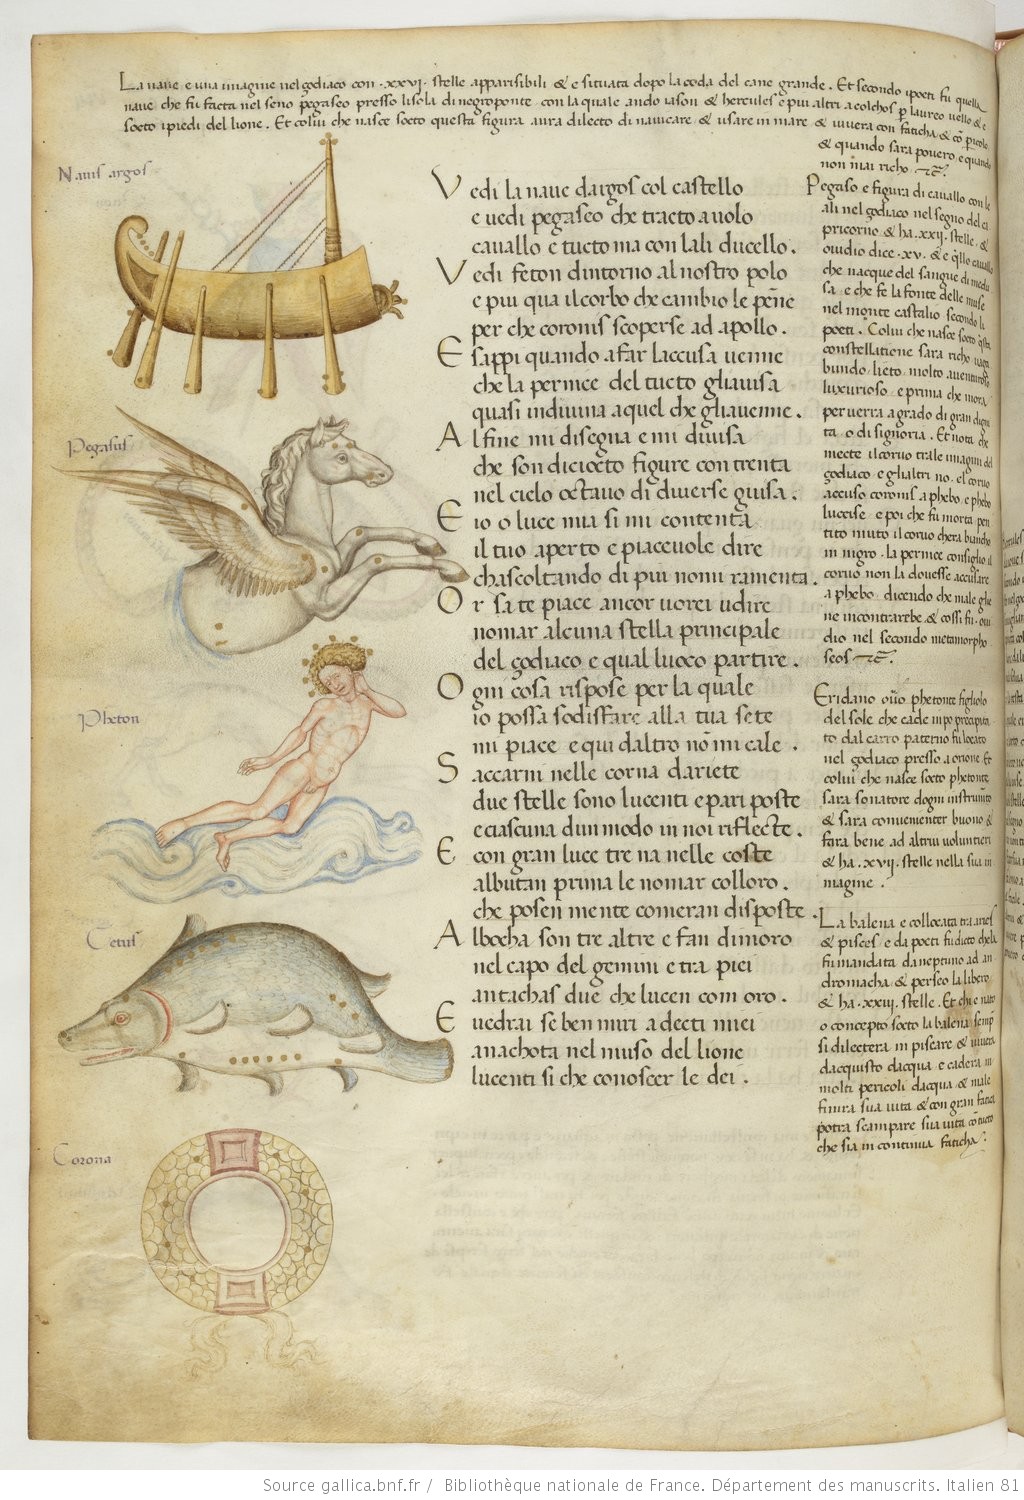 La naue e una imagine nel zodiaco con .xxvi. stelle apparisibili & e situata dopo la coda del cane grande. Et secondo ipoeti fu quella
naue che fu facta nel seno pegaseo presso lisola di negroponte con la quale ando iason & hercules e piu altri a colchos p laureo uello & e
socto ipiedi del lione. Et colui che nasce socto questa figura aura dilecto di nauicare & usare in mare & uiuera con faticha & cō pericolo
& quando sara pouero e quando
non mai richo
Nauis argos
Pegasus
Pheton
Cetus
Corona
Vedi la naue dargos col castello
e uedi pegaseo che tracto a uolo
cauallo e tucto ma con lali ducello.
Vedi feton dintorno al nostro polo
e piu qua il corbo che cambio le pēne
per che coronis scoperse ad apollo.
E sappi quando a far laccusa uenne
che la pernice del tucto gliauisa
quasi indiuina aquel che gliauenne.
Al fine mi disegna e mi diuisa
che son diciocto figure con trenta
nel cielo octauo di diuerse guisa.
E io o luce mia si mi contenta
il tuo aperto e piaceuole dire
chascoltando di piu nomi ramenta.
Or sa te piace ancor uorei udire
nomar alcuna stella principale
del zodiaco e qual luoco partire.
Ogni cosa rispose per la quale
io possa sodisfare alla tua sete
mi piace e qui daltro nō mi cale.
Saccarni nelle corna dariete
due stelle sono lucenti e pari poste
e ciascuna dun modo in noi riflecte.
E con gran luce tre na nelle coste
albutan prima le nomar colloro.
che posen mente comeran disposte.
Albocha son tre altre e fan dimoro
nel capo del gemini e tra piei
antachas due che lucen com oro.
E uedrai se ben miri a decti miei
anachota nel muso del lione
lucenti si che conoscer le dei.
Pegaso e figura di cauallo con le
ali nel zodiaco nel segno del ca
pricorno & ha .xxii. stelle. &
ouidio dice .xv. & e qllo cauallo
che nacque del sangue di medu
sa. e che fe la fonte delle muse
nel monte castalio secondo li
poeti. Colui che nasce socto qsta
constellatione sara richo uaga
bundo. lieto. molto auenturoso
luxurioso. e prima che mora
peruerra a grado di gran digni
ta o di signoria. Et nota che
mecte il coruo tra le imagini del
zodiaco e glialtri no. el coruo
accuso coronis a phebo e phebo
luccise e poi che fu morta pen
tito muto il coruo chera biancho
in nigro. la pernice consiglio il
coruo non la douesse accusare
a phebo. dicendo che male glie
ne incontrarebe & cossi fu. oui
dio nel secondo metamorpho
seos
Eridano ouo phetonte figliolo
del sole che cade in po precipita
to dal carro paterno fu locato
nel zodiaco presso a orione Et
colui che nasce socto phetonte
sara sonatore dogni instrumto
& sara conueniente buono &
fara bene ad altrui uoluntieri
& ha .xvij. stelle nella sua in
magine.
La balena e collocata tra aries
& pisces e da poeti fu dicto che la
fu mandata da neptuno ad an
dromacha & perseo la libero
& ha .xxiii. stelle. Et chi e nato
o concepto socto la balena semp
si dilectera in piscare & uiuera
dacquisto dacqua e cadera in
molti pericoli dacqua & male
finira sua uita & con gran fatica
potra scampare sua uita cō tucto
che sia in continua faticha.
Source gallica.bnf.fr / Bibliothèque nationale de France. Département des manuscrits. Italien 81